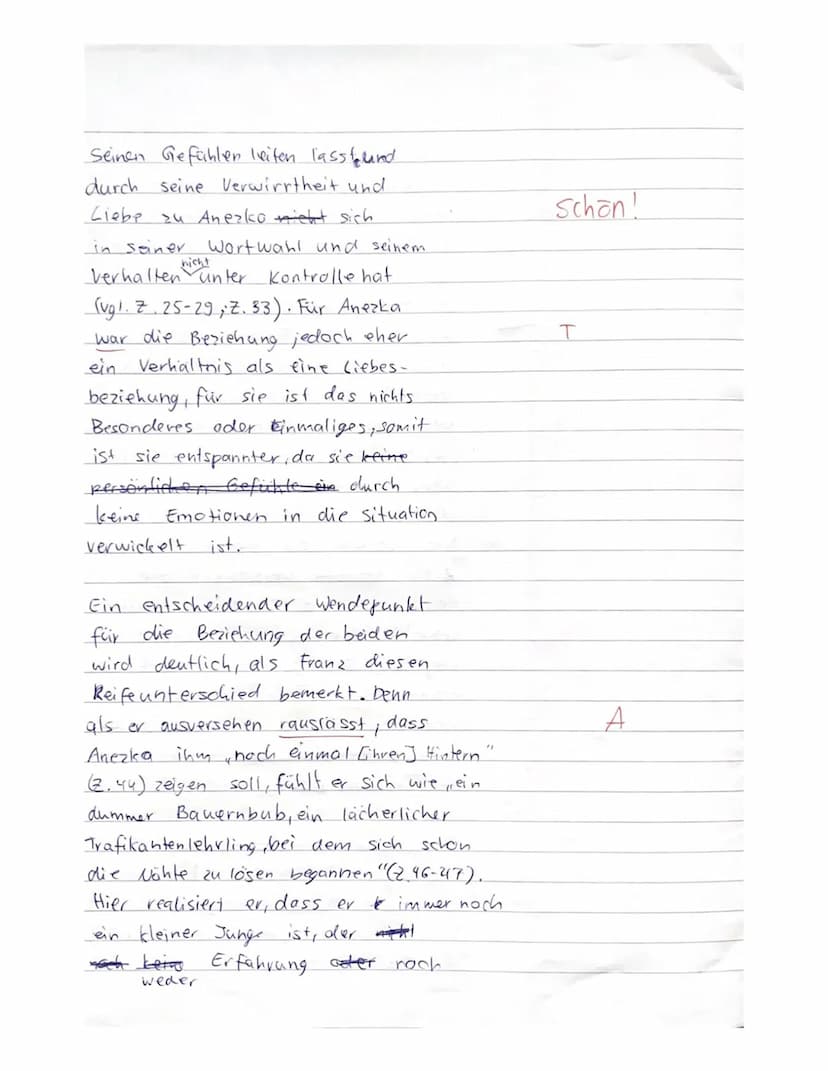 seinen Gefühlen leiten lässt und
durch seine Verwirrtheit und
Schön!
Liebe zu Anezka nicht sich
in seiner Wortwahl und seinem
nicht
Verhalten unter Kontrolle hat
(vgl. Z. 25-29; Z. 33). Für Anezka
war die Beziehung jedoch eher
T
ein Verhältnis als eine Liebes-
beziehung, für sie ist das nichts
Besonderes oder Einmaliges, somit
ist sie entspannter, da sie keine
persönlichen Gefühle ein durch
keine Emotionen in die Situation
verwickelt ist.
Ein entscheidender Wendepunkt
für die Beziehung der beiden
wird deutlich, als Franz diesen
Reifeunterschied bemerkt. Denn
als er ausversehen rauslässt, dass
A
Anezka ihm „noch einmal [ihren] Hintern"
(Z. 44) zeigen soll, fühlt er sich wie „ein
dummer Bauernbub, ein lächerlicher
Trafikantenlehrling, bei dem sich schon
die Nähte zu lösen begannen" (Z. 46-47).
Hier realisiert er, dass er immer noch
ein kleiner Junge ist, der nicht
noch keine Erfahrung oder noch
weder